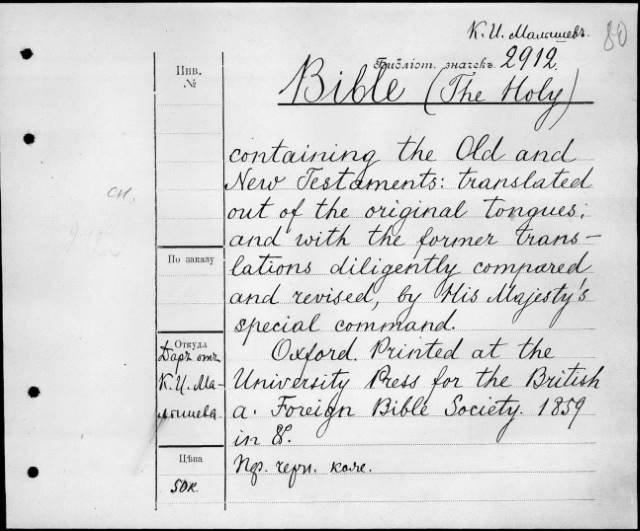 К. И. Малышевъ. 80
Библіот. значекъ. 2912.
Инв.
№
Bible (The Holy)
containing the Old and
New Testaments: translated
out of the original tongues;
and with the former trans-
По заказу
lations diligently compared
and revised, by His Majesty's
special command.
Откуда
Даръ отъ
К. И. Ма-
лышева.
Oxford. Printed at the
University Press for the British
a. Foreign Bible Society. 1859
in 8.
Цѣна
50к.
черн. коле.